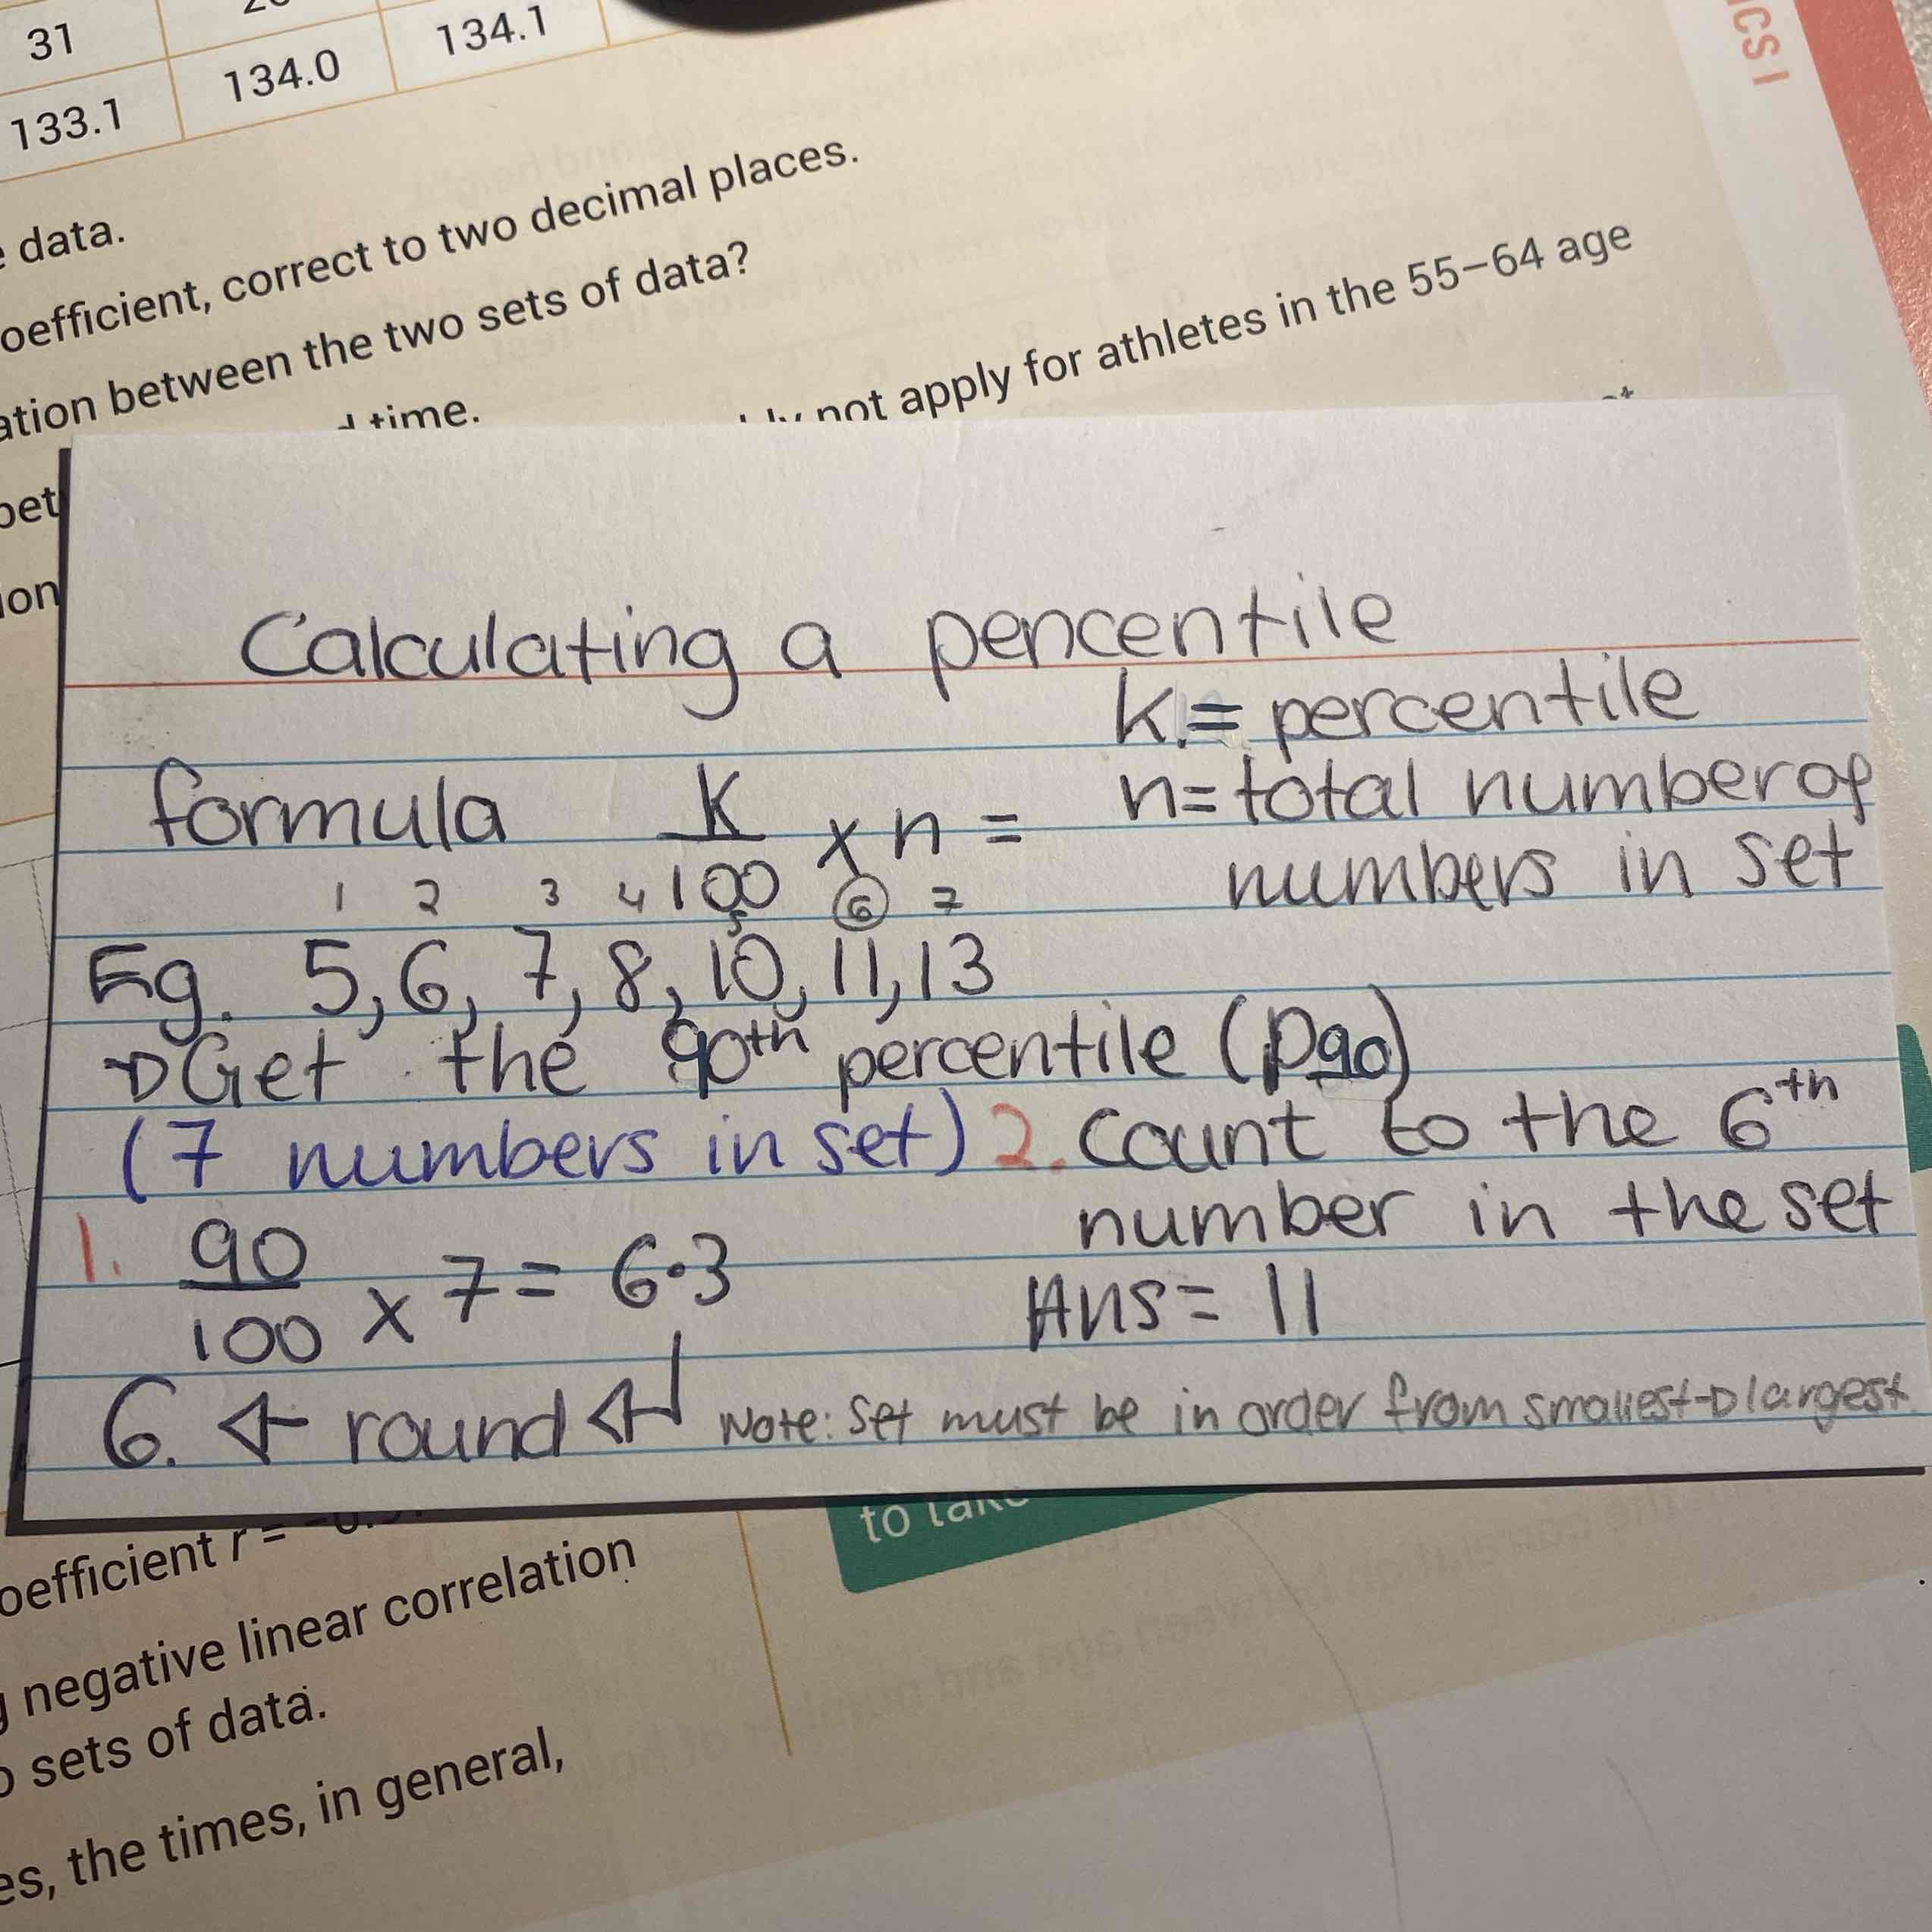 31
133.1 134.0 134.1
data.
oefficient, correct to two decimal places.
ation between the two sets of data?
time.
not apply for athletes in the 55–64 age
bet
ion
Calculating a pencentile
k = percentile
formula K/100 x n =
n = total number of
numbers in set
1 2 3 4 5 6 7
Eg. 5, 6, 7, 8, 10, 11, 13
Get the 90th percentile (P90)
(7 numbers in set)
1. 90/100 x 7 = 6.3
6. ← round ←
2. Count to the 6th
number in the set
Ans = 11
Note: Set must be in order from smallest → largest
to take
oefficient r =
negative linear correlation
sets of data.
es, the times, in general,